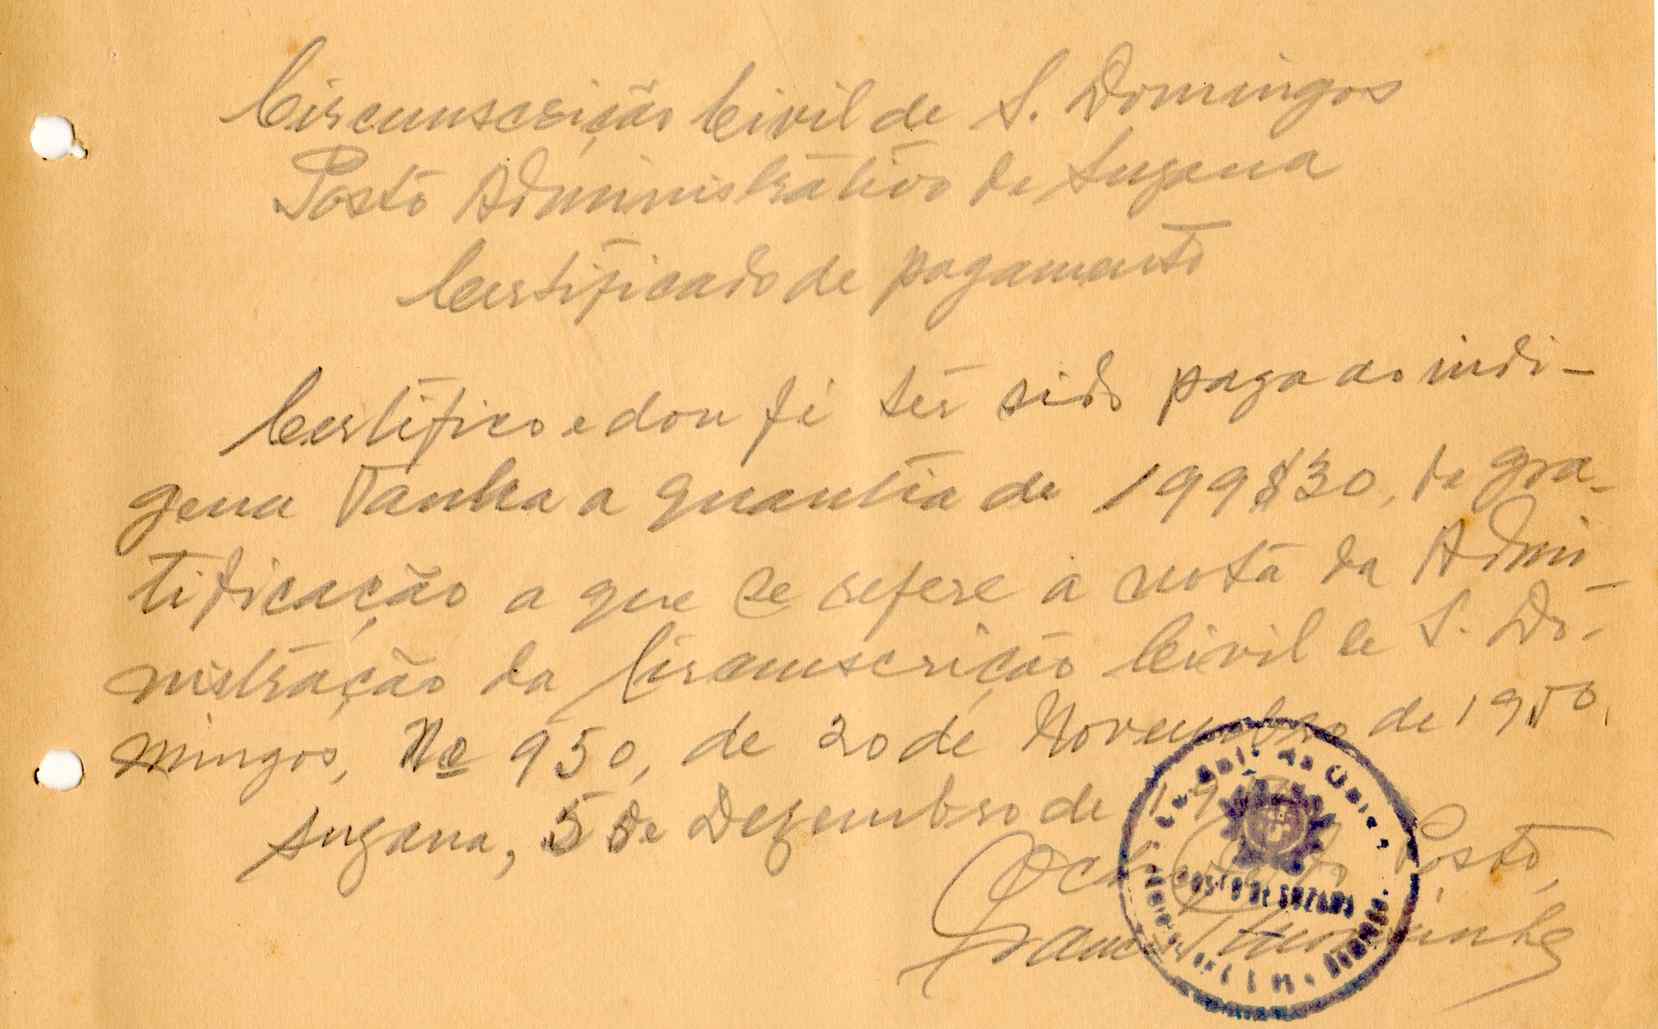 Circunscrição Civil de S. Domingos
Posto Administrativo de Suzana
Certificado de pagamento
Certifico e dou fé ter sido paga ao indi-
gena Tanha a quantia de 199$30, de gra-
tificação a que se refere a nota da Admi-
nistração da Circunscrição Civil de S. Do-
mingos, Nº 950, de 20 de Novembro de 1950.
Suzana, 5 de Dezembro de 19
O Posto,
POSTO DE SUZANA